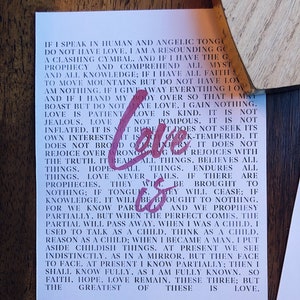 IF I SPEAK IN HUMAN AND ANGELIC TONGU
DO NOT HAVE LOVE, I AM A RESOUNDING GO
A CLASHING CYMBAL. AND IF I HAVE THE G
PROPHECY AND COMPREHEND ALL MYST
AND ALL KNOWLEDGE; IF I HAVE ALL FAITH
TO MOVE MOUNTAINS BUT DO NOT HAVE LOV
AM NOTHING. IF I GIVE AWAY EVERYTHING I
AND IF I HAND MY OVER SO THAT I M
BOAST BUT DO NOT HAVE LOVE, I GAIN NOTHING.
LOVE IS PATIENT, IS KIND. IT IS NOT
JEALOUS, LOVE IS NOT POMPOUS, IT IS NOT
INFLATED, IT IS NOT SEEK ITS
OWN INTERESTS, TEMPERED, IT
DOES NOT IT DOES NOT
REJOICE OVER REJOICES WITH
THE TRUTH. IT THINGS, BELIEVES ALL
THINGS, HOPES ALL ENDURES ALL
THINGS. LOVE NEVER FAILS. IF THERE ARE
PROPHECIES, THEY BROUGHT TO
NOTHING; IF TONGUES, WILL CEASE; IF
KNOWLEDGE, IT WILL BROUGHT TO NOTHING.
FOR WE KNOW PARTIALLY AND WE PROPHESY
PARTIALLY, BUT WHEN THE PERFECT COMES, THE
PARTIAL WILL PASS AWAY. WHEN I WAS A CHILD, I
USED TO TALK AS A CHILD, THINK AS A CHILD,
REASON AS A CHILD; WHEN I BECAME A MAN, I PUT
ASIDE CHILDISH THINGS. AT PRESENT WE SEE
INDISTINCTLY, AS IN A MIRROR, BUT THEN FACE
TO FACE. AT PRESENT I KNOW PARTIALLY; THEN I
SHALL KNOW FULLY, AS I AM FULLY KNOWN. SO
FAITH, HOPE, LOVE REMAIN, THESE THREE; BUT
THE GREATEST OF THESE IS LOVE.
Love
is